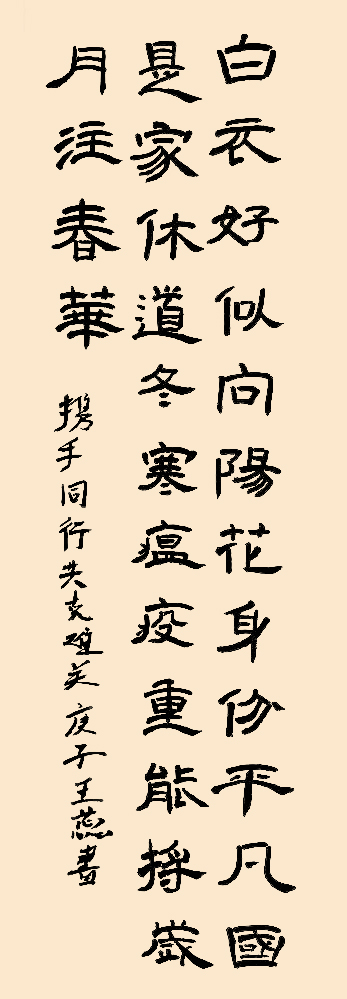 白衣好似向陽花身份平凡國
是家休道冬寒瘟疫重能将歲
月注春華
携手同行共克難关庚子王蕊書